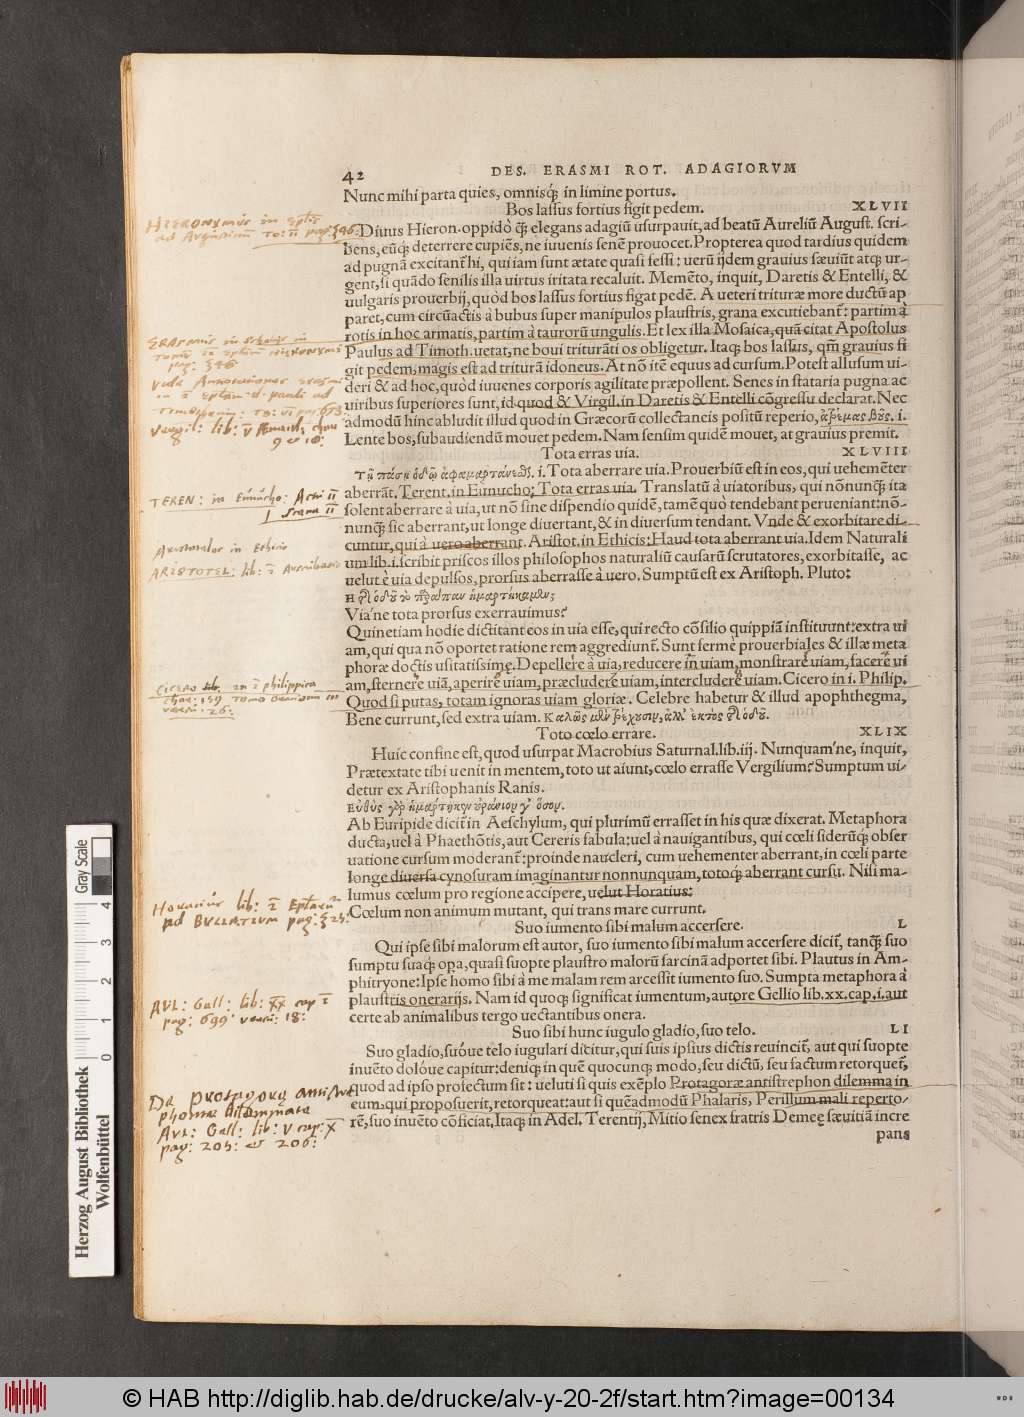 42 DES. ERASMI ROT. ADAGIORVM
Nunc mihi parta quies, omnisq́; in limine portus.
Bos lassus fortius figit pedem. XLVII
Diuus Hieron. oppidò q̃; elegans adagiũ usurpauit, ad beatũ Aureliũ August. scri-
bens, eũq́; deterrere cupiẽs, ne iuuenis senẽ prouocet. Propterea quod tardius quidem
ad pugnã excitant̃ hi, qui iam sunt ætate quasi fessi: uerũ ijdem grauius sæuiũt atq; ur-
gent, si quãdo senilis illa uirtus iritata recaluit. Memẽto, inquit, Daretis & Entelli, &
uulgaris prouerbij, quòd bos lassus fortius figat pedẽ. A ueteri trituræ more ductũ ap
paret, cum circũactis à bubus super manipulos plaustris, grana excutiebant̃: partim à
rotis in hoc armatis, partim à taurorũ ungulis. Et lex illa Mosaica, quã citat Apostolus
Paulus ad Timoth. uetat, ne boui triturãti os obligetur. Itaq; bos lassus, qm̃ grauius fi
git pedem, magis est ad triturã idoneus. At nõ itẽ equus ad cursum. Potest allusum ui-
deri & ad hoc, quòd iuuenes corporis agilitate præpollent. Senes in stataria pugna ac
uiribus superiores sunt, id quod & Virgil. in Daretis & Entelli cõgressu declarat. Nec
admodũ hinc abludit illud quod in Græcorũ collectaneis positũ reperio, ἀτρέμας βοῦς. i.
Lente bos, subaudiendũ mouet pedem. Nam sensim quidẽ mouet, at grauius premit.
Tota erras uia. XLVIII
Τῇ πάσῃ ὁδῷ ἀφαμαρτάνεις. i. Tota aberrare uia. Prouerbiũ est in eos, qui uehemẽter
aberrãt. Terent. in Eunucho: Tota erras uia. Translatũ à uiatoribus, qui nõnunq̃; ita
solent aberrare à uia, ut nõ sine dispendio quidẽ, tamẽ quò tendebant perueniant: nõ-
nunq̃; sic aberrant, ut longe diuertant, & in diuersum tendant. Vnde & exorbitare di-
cuntur, qui à uero aberrant. Aristot. in Ethicis: Haud tota aberrant uia. Idem Naturali
um lib. i. scribit priscos illos philosophos naturaliũ causarũ scrutatores, exorbitasse, ac
uelut è uia depulsos, prorsus aberrasse à uero. Sumptũ est ex Aristoph. Pluto:
Η τῆς ὁδοῦ τὸ παράπαν ἡμαρτήκαμεν;
Via'ne tota prorsus exerrauimus?
Quinetiam hodie dictitant eos in uia esse, qui recto cõsilio quippiã instituunt: extra ui
am, qui qua nõ oportet ratione rem aggrediunt̃. Sunt fermè prouerbiales & illæ meta
phoræ doctis usitatissimę. Depellere à uia, reducere in uiam, monstrare uiam, facere ui
am, sternere uiã, aperire uiam, præcludere uiam, intercludere uiam. Cicero in i. Philip.
Quod si putas, totam ignoras uiam gloriæ. Celebre habetur & illud apophthegma,
Bene currunt, sed extra uiam. Καλῶς μὲν τρέχουσιν, ἀλλ' ἐκτὸς τῆς ὁδοῦ.
Toto cœlo errare. XLIX
Huic confine est, quod usurpat Macrobius Saturnal. lib. iij. Nunquam'ne, inquit,
Prætextate tibi uenit in mentem, toto ut aiunt, cœlo errasse Vergilium? Sumptum ui-
detur ex Aristophanis Ranis.
Εὐθὺς γὰρ ἡμάρτηκεν οὐράνιον γ' ὅσον.
Ab Euripide dicit̃ in Aeschylum, qui plurimũ errasset in his quæ dixerat. Metaphora
ducta, uel à Phaethõtis, aut Cereris fabula: uel à nauigantibus, qui cœli siderũq́; obser
uatione cursum moderant̃: proinde naucleri, cum uehementer aberrant, in cœli parte
longe diuersa cynosuram imaginantur nonnunquam, totoq́; aberrant cursu. Nisi ma-
lumus cœlum pro regione accipere, uelut Horatius:
Cœlum non animum mutant, qui trans mare currunt.
Suo iumento sibi malum accersere. L
Qui ipse sibi malorum est autor, suo iumento sibi malum accersere dicit̃, tanq̃; suo
sumptu suaq́; opa, quasi suopte plaustro malorũ sarcinã adportet sibi. Plautus in Am-
phitryone: Ipse homo sibi à me malam rem arcessit iumento suo. Sumpta metaphora à
plaustris onerarijs. Nam id quoq; significat iumentum, autore Gellio lib. xx. cap. i. aut
certe ab animalibus tergo uectantibus onera.
Suo sibi hunc iugulo gladio, suo telo. LI
Suo gladio, suóue telo iugulari dicitur, qui suis ipsius dictis reuincit̃, aut qui suopte
inuẽto dolóue capitur: deniq; in quẽ quocunq; modo, seu dictũ, seu factum retorquet̃,
quod ad ipso profectum sit: ueluti si quis exẽplo Protagoræ antistrephon dilemma in
eum, qui proposuerit, retorqueat: aut si quẽadmodũ Phalaris, Perillum mali reperto-
rẽ, suo inuẽto cõficiat, Itaq; in Adel. Terentij, Mitio senex fratris Demeę sæuitiã incre
pans
HIERONYmus in Eptis
ad Augustinum To: II pag: 346.
pag: 346
Vergil: lib: V Æneid: circa
9 & 10:
TEREN: in Eunucho: Actu II
Scena II
Aristoteles in Ethicis
ARISTOTEL: lib: I
CICERO in I philippica
Horatius lib: I Eptarũ
ad BULLATIUM pag: 325:
AVL: Gell: lib: XX cap I
pag: 699 versu: 18:
De protagoræ antistre
phonte Dilemmate
AVL: Gell: lib: V cap: X
pag: 205: & 206:
Gray Scale
0 1 2 3 4
Herzog August Bibliothek
Wolfenbüttel
© HAB http://diglib.hab.de/drucke/alv-y-20-2f/start.htm?image=00134